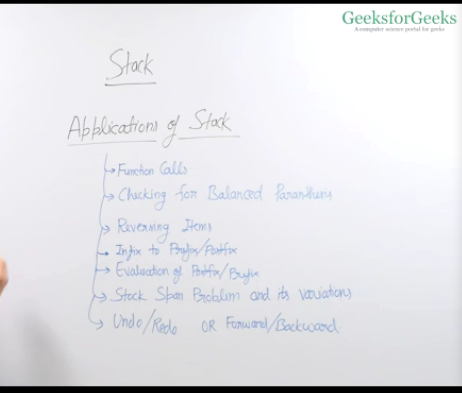 GeeksforGeeks
A computer science portal for geeks
Stack
Applications of Stack
Function Calls
Checking for Balanced Paranthesis
Reversing Items
Infix to Prefix/Postfix
Evaluation of Postfix/Prefix
Stock Span Problem and its variations
Undo/Redo OR Forward/Backward.